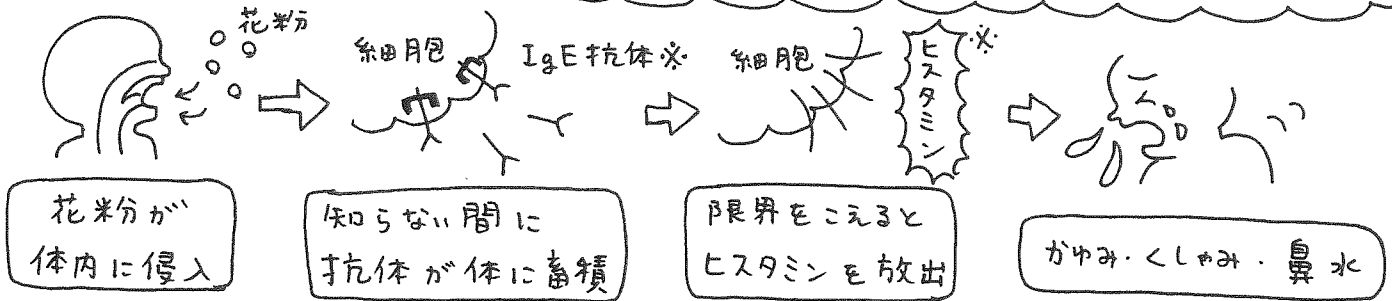 花粉
細胞
IgE抗体※
細胞
ヒスタミン
※
花粉が
体内に侵入
知らない間に
抗体が体に畜積
限界をこえると
ヒスタミンを放出
かゆみ・くしゃみ・鼻水